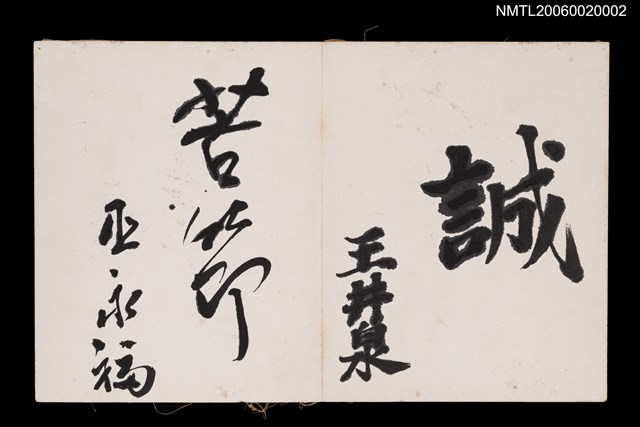 NMTL20060020002
誠
王井泉
苦節
巫永福